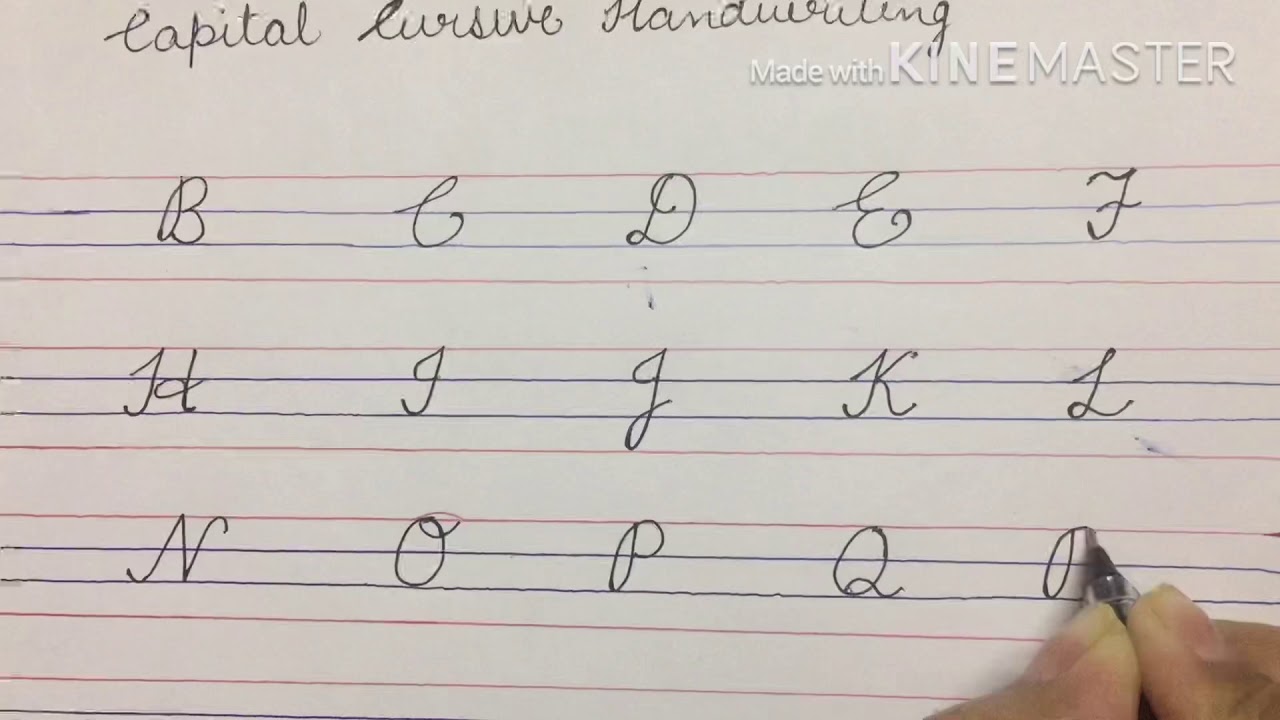 Capital Cursive Handwriting
Made with KINEMASTER
B C D E F
H I J K L
N O P Q